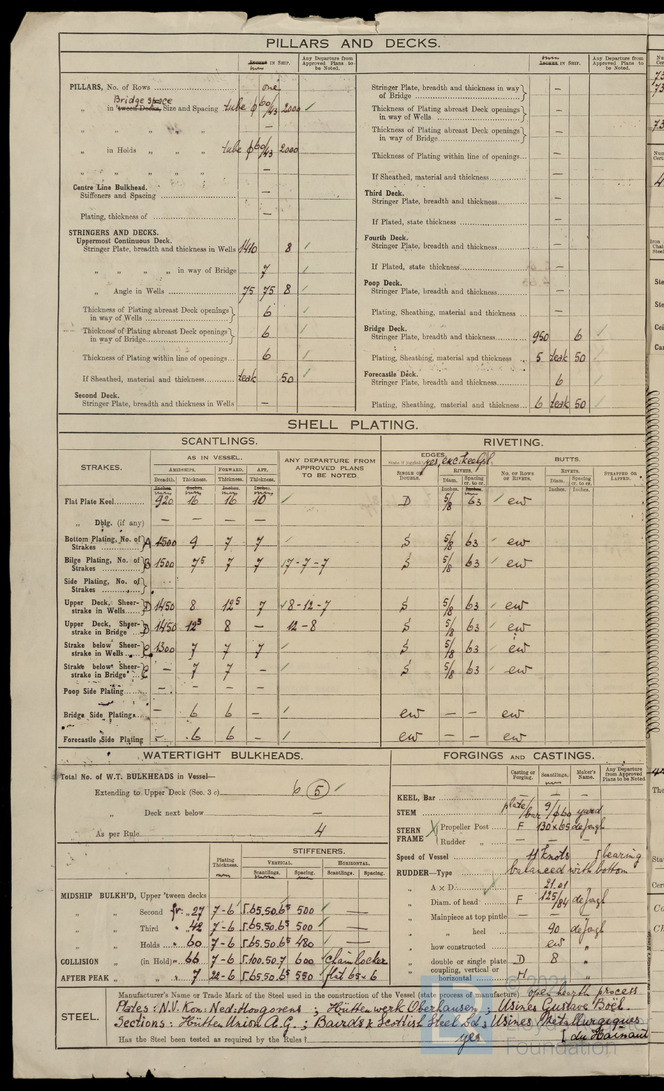 PILLARS AND DECKS.
Inches in Ship.
mm
Any Departure from Approved Plans to be Noted.
PILLARS, No. of Rows one
Bridge space
„ in 'tween Decks, Size and Spacing tube φ 60/43 2000 ✓
„ „ „ „ —
„ in Holds „ „ tube φ 60/43 2000
„ „ „ „ —
Centre Line Bulkhead.
Stiffeners and Spacing —
Plating, thickness of —
STRINGERS AND DECKS.
Uppermost Continuous Deck.
Stringer Plate, breadth and thickness in Wells 1410 8 ✓
„ „ „ „ in way of Bridge 7 ✓
„ Angle in Wells 75 75 8 ✓
Thickness of Plating abreast Deck openings in way of Wells 6 ✓
Thickness of Plating abreast Deck openings in way of Bridge 6 ✓
Thickness of Plating within line of openings 6 ✓
If Sheathed, material and thickness teak 50 ✓
Second Deck.
Stringer Plate, breadth and thickness in Wells —
Inches in Ship.
Any Departure from Approved Plans to be Noted.
Stringer Plate, breadth and thickness in way of Bridge —
Thickness of Plating abreast Deck openings in way of Wells —
Thickness of Plating abreast Deck openings in way of Bridge —
Thickness of Plating within line of openings —
If Sheathed, material and thickness —
Third Deck.
Stringer Plate, breadth and thickness —
If Plated, state thickness —
Fourth Deck.
Stringer Plate, breadth and thickness —
If Plated, state thickness —
Poop Deck.
Stringer Plate, breadth and thickness —
Plating, Sheathing, material and thickness —
Bridge Deck.
Stringer Plate, breadth and thickness 950 6 ✓
Plating, Sheathing, material and thickness 5 teak 50 ✓
Forecastle Deck.
Stringer Plate, breadth and thickness 6 ✓
Plating, Sheathing, material and thickness 6 teak 50 ✓
SHELL PLATING.
SCANTLINGS. RIVETING.
STRAKES. AS IN VESSEL. ANY DEPARTURE FROM APPROVED PLANS TO BE NOTED. EDGES. yes, exc. keelpl. BUTTS.
AMIDSHIPS. FORWARD. AFT. SINGLE OR DOUBLE. RIVETS. NO. OF ROWS OF RIVETS. RIVETS. STRAPPED OR LAPPED.
Breadth. Thickness. Thickness. Thickness. Diam. Spacing cr. to cr. Diam. Spacing cr. to cr.
Flat Plate Keel 920 16 16 10 ✓ D 5/8 63 ✓ ew
„ Dblg. (if any) — — — —
Bottom Plating, No. of Strakes A 1500 9 7 7 ✓ S 5/8 63 ✓ ew
Bilge Plating, No. of Strakes B 1500 7⁵ 7 7 17-7-7 S 5/8 63 ✓ ew
Side Plating, No. of Strakes
Upper Deck, Sheerstrake in Wells D 1450 8 12⁵ 7 ✓8-12-7 S 5/8 63 ✓ ew
Upper Deck, Sheerstrake in Bridge D 1450 12⁵ 8 — 12-8 S 5/8 63 ✓ ew
Strake below Sheerstrake in Wells C 1300 7 7 7 ✓ S 5/8 63 ✓ ew
Strake below Sheerstrake in Bridge C — 7 7 — ✓ S 5/8 63 ✓ ew
Poop Side Plating — — — —
Bridge Side Plating — 6 6 — ✓ ew — — ew
Forecastle Side Plating — 6 6 — ✓ ew — — ew
WATERTIGHT BULKHEADS.
Total No. of W.T. BULKHEADS in Vessel—
Extending to Upper Deck (Sec. 3 c) 6 (5) ✓
„ Deck next below —
As per Rule 4
Plating Thickness. STIFFENERS.
VERTICAL. HORIZONTAL.
Scantlings. Spacing. Scantlings. Spacing.
MIDSHIP BULKH'D, Upper 'tween decks
„ „ Second „ fr. 27 7-6 65.50.6⁵ 500 ✓ —
„ „ Third „ 42 7-6 65.50.6⁵ 500 ✓ —
„ „ Holds „ 60 7-6 65.50.6⁵ 480 ✓ —
COLLISION „ (in Hold) 66 7-6 100.50.7 600 chain locker
AFTER PEAK „ „ 7 22-6 65.50.6⁵ 550 flat 65-6
FORGINGS AND CASTINGS.
Casting or Forging. Scantlings. Maker's Name. Any Departure from Approved Plans to be Noted.
KEEL, Bar — — —
STEM plate/bar 9/φ60 yard
STERN FRAME Propeller Post F 130x65 de Jagh
Rudder „ — —
Speed of Vessel 11 Knots bearing
RUDDER—Type balanced with bottom
„ A x D 21.01
„ Diam. of head F 125/84 de Jagh
„ Mainpiece at top pintle —
„ „ heel 90 de Jagh
„ how constructed ew „
„ double or single plate D 8 „
„ coupling, vertical or horizontal H „
STEEL.
Manufacturer's Name or Trade Mark of the Steel used in the construction of the Vessel (state process of manufacture) open hearth process
Plates: N.V. Kon. Ned. Hoogovens ; Hüttenwerk Oberhausen ; Usines Gustave Boël.
Sections: Hütten Union A.G. ; Bairds & Scottish Steel Ltd ; Usines Métallurgiques du Hainaut
Has the Steel been tested as required by the Rules yes
© 2021
Foundation